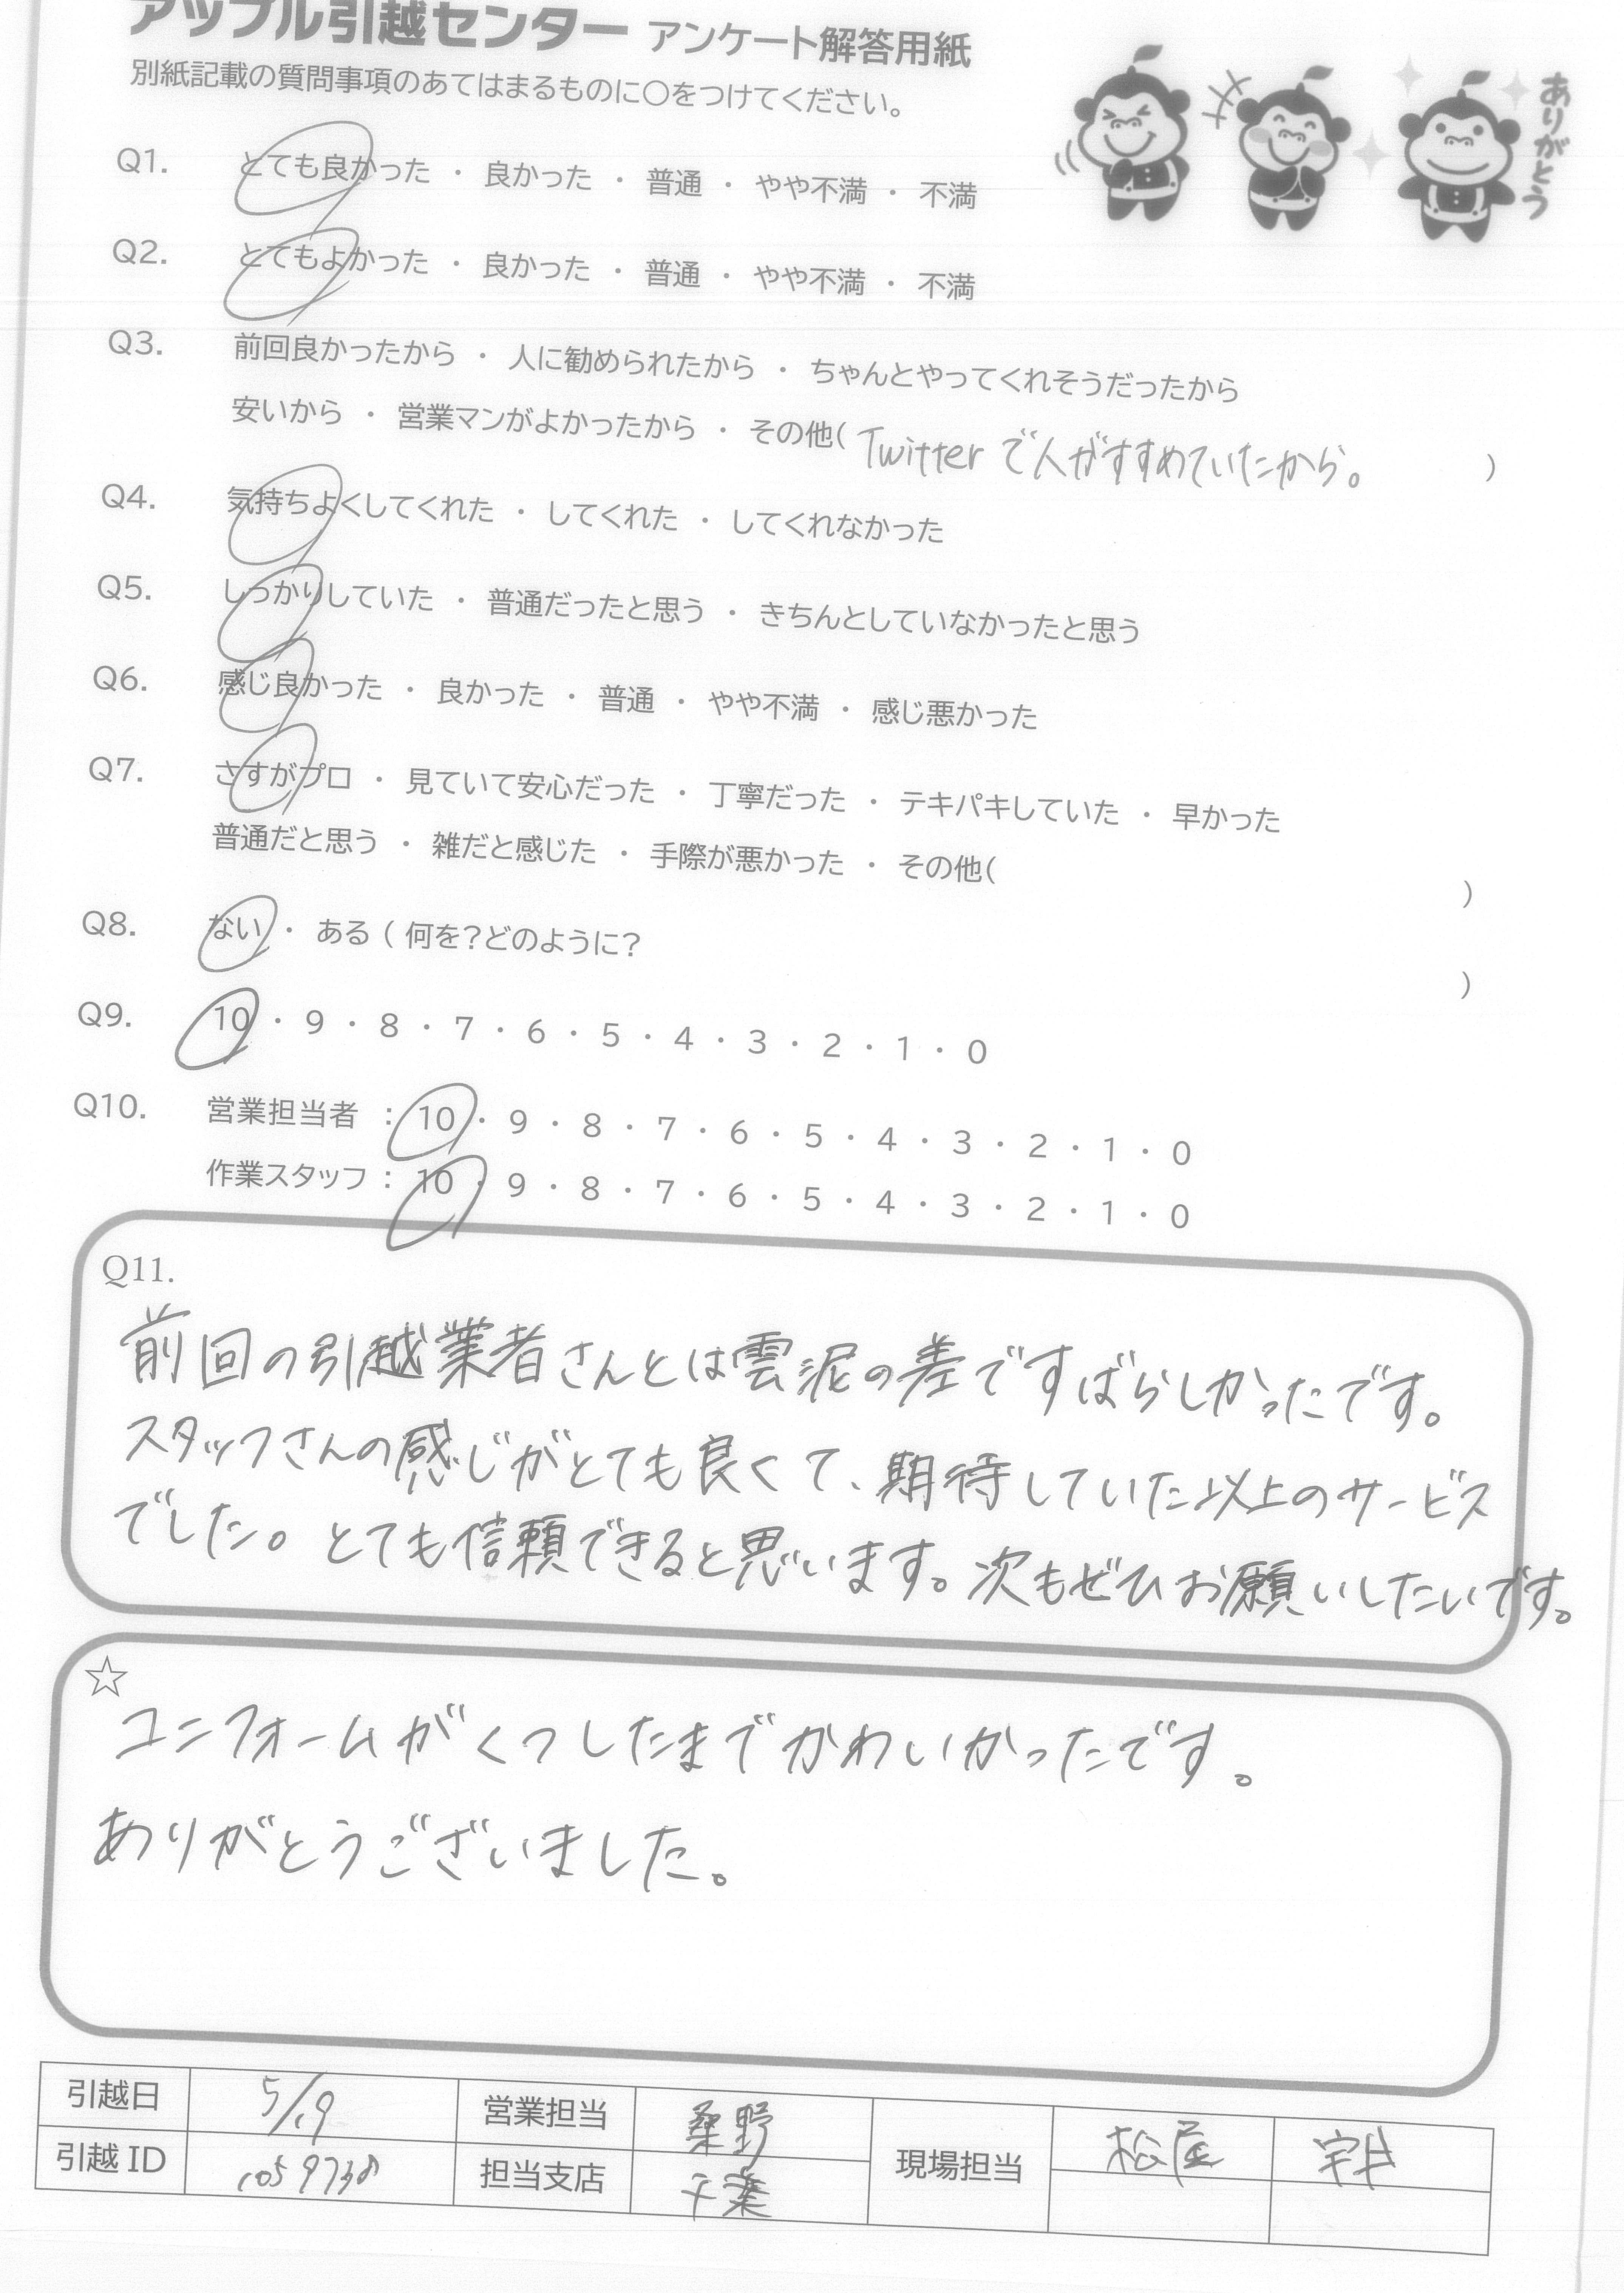 アップル引越センター アンケート解答用紙
別紙記載の質問事項のあてはまるものに○をつけてください。
ありがとう
Q1. とても良かった ・ 良かった ・ 普通 ・ やや不満 ・ 不満
Q2. とてもよかった ・ 良かった ・ 普通 ・ やや不満 ・ 不満
Q3. 前回良かったから ・ 人に勧められたから ・ ちゃんとやってくれそうだったから
安いから ・ 営業マンがよかったから ・ その他( Twitterで人がすすめていたから。 )
Q4. 気持ちよくしてくれた ・ してくれた ・ してくれなかった
Q5. しっかりしていた ・ 普通だったと思う ・ きちんとしていなかったと思う
Q6. 感じ良かった ・ 良かった ・ 普通 ・ やや不満 ・ 感じ悪かった
Q7. さすがプロ ・ 見ていて安心だった ・ 丁寧だった ・ テキパキしていた ・ 早かった
普通だと思う ・ 雑だと感じた ・ 手際が悪かった ・ その他( )
Q8. ない ・ ある ( 何を?どのように? )
Q9. 10 ・ 9 ・ 8 ・ 7 ・ 6 ・ 5 ・ 4 ・ 3 ・ 2 ・ 1 ・ 0
Q10. 営業担当者 : 10 ・ 9 ・ 8 ・ 7 ・ 6 ・ 5 ・ 4 ・ 3 ・ 2 ・ 1 ・ 0
作業スタッフ : 10 ・ 9 ・ 8 ・ 7 ・ 6 ・ 5 ・ 4 ・ 3 ・ 2 ・ 1 ・ 0
Q11.
前回の引越業者さんとは雲泥の差ですばらしかったです。
スタッフさんの感じがとても良くて、期待していた以上のサービス
でした。とても信頼できると思います。次もぜひお願いしたいです。
☆
ユニフォームがくつしたまでかわいかったです。
ありがとうございました。
引越日 5/19 営業担当 桑野 現場担当 松屋 宇井
引越 ID 1059738 担当支店 千葉